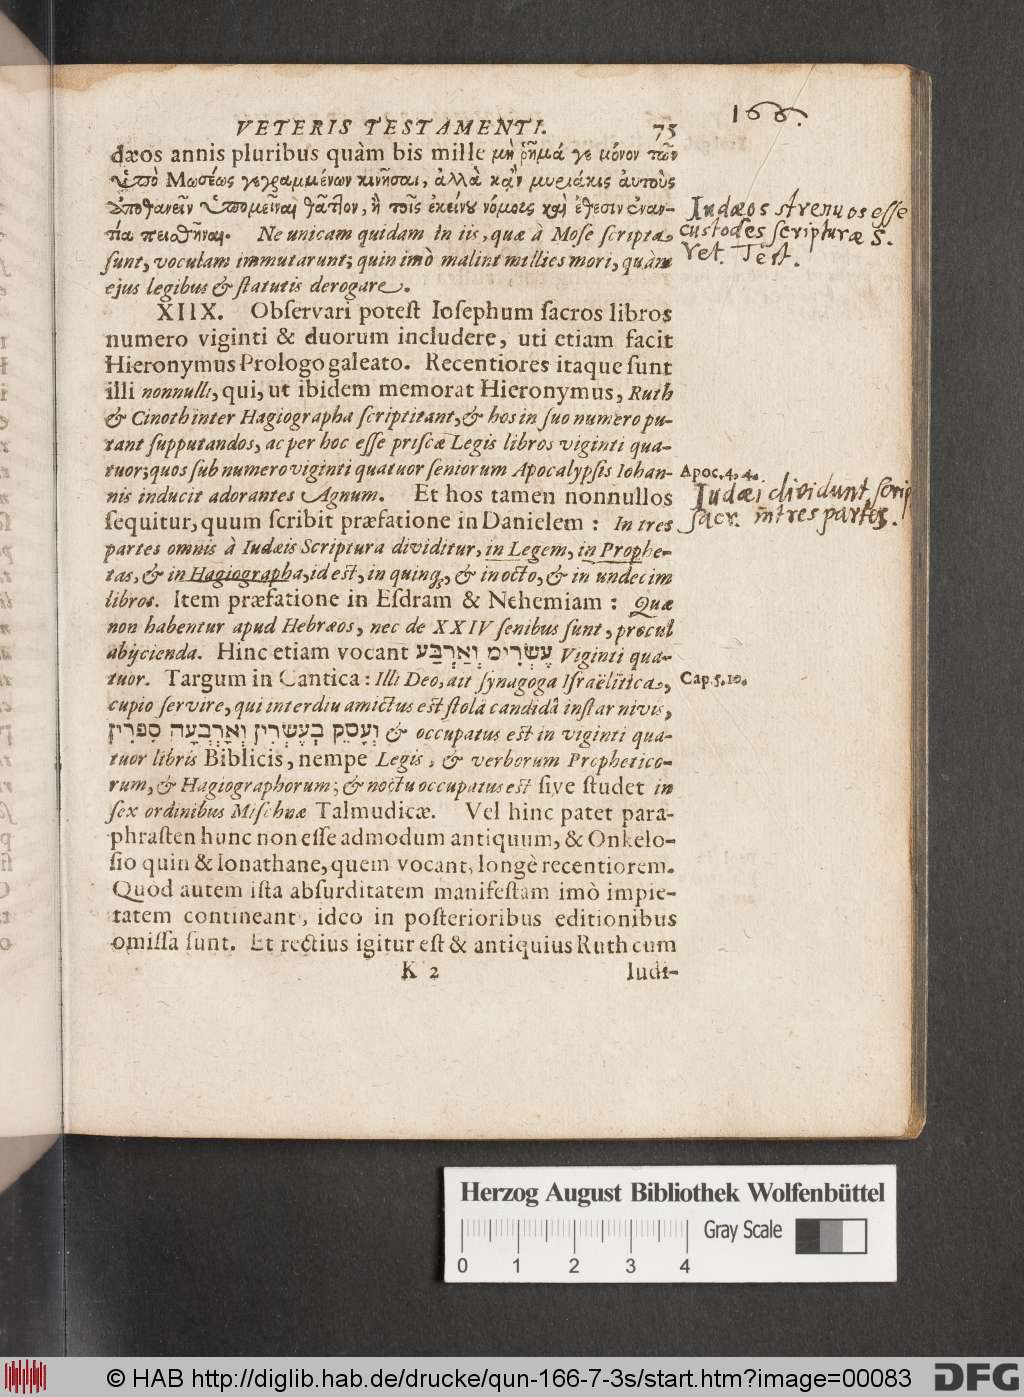 VETERIS TESTAMENTI. 75
166.
dæos annis pluribus quàm bis mille μὴ ῥῆμά γε μόνον τῶν
ὑπὸ Μωσέως γεγραμμένων κινῆσαι, ἀλλὰ κᾂν μυριάκις ἀυτοὺς
ἀποθανεῖν ὑπομεῖναι θᾶττον, ἢ τοῖς ἐκείνου νόμοις καὶ ἔθεσιν ἐναν-
τία πεισθῆναι. Ne unicam quidam in iis, quæ à Mose scripta
sunt, voculam immutarunt; quin imò malint millies mori, quàm
ejus legibus & statutis derogare.
Judæos strenuos esse
custodes scripturæ S.
Vet. Test.
XIIX. Observari potest Iosephum sacros libros
numero viginti & duorum includere, uti etiam facit
Hieronymus Prologo galeato. Recentiores itaque sunt
illi nonnulli, qui, ut ibidem memorat Hieronymus, Ruth
& Cinoth inter Hagiographa scriptitant, & hos in suo numero pu-
tant supputandos, ac per hoc esse priscæ Legis libros viginti qua-
tuor; quos sub numero viginti quatuor seniorum Apocalypsis Iohan-
nis inducit adorantes Agnum. Et hos tamen nonnullos
sequitur, quum scribit præfatione in Danielem: In tres
partes omnis à Iudæis Scriptura dividitur, in Legem, in Prophe-
tas, & in Hagiographa, id est, in quinq;, & in octo, & in undecim
libros. Item præfatione in Esdram & Nehemiam: Quæ
non habentur apud Hebræos, nec de XXIV senibus sunt, procul
abijcienda. Hinc etiam vocant עֶשְׂרִים וְאַרְבַּע Viginti qua-
tuor. Targum in Cantica: Illi Deo, ait synagoga Israëlitica,
cupio servire, qui interdiu amictus est stolâ candidâ instar nivis,
וְעָסֵק בְּעֶשְׂרִין וְאָרְבְּעָה סִפְרִין & occupatus est in viginti qua-
tuor libris Biblicis, nempe Legis, & verborum Prophetico-
rum, & Hagiographorum; & noctu occupatus est sive studet in
sex ordinibus Mischnæ Talmudicæ. Vel hinc patet para-
phrasten hunc non esse admodum antiquum, & Onkelo-
sio quin & Ionathane, quem vocant, longè recentiorem.
Quòd autem ista absurditatem manifestam imò impie-
tatem contineant, ideo in posterioribus editionibus
omissa sunt. Et rectius igitur est & antiquius Ruth cum
Apoc. 4, 4.
Judæi dividunt scrip
sacr. in tres partes.
Cap. 5. 10.
K 2 Iudi-
Herzog August Bibliothek Wolfenbüttel
Gray Scale
0 1 2 3 4
© HAB http://diglib.hab.de/drucke/qun-166-7-3s/start.htm?image=00083
DFG